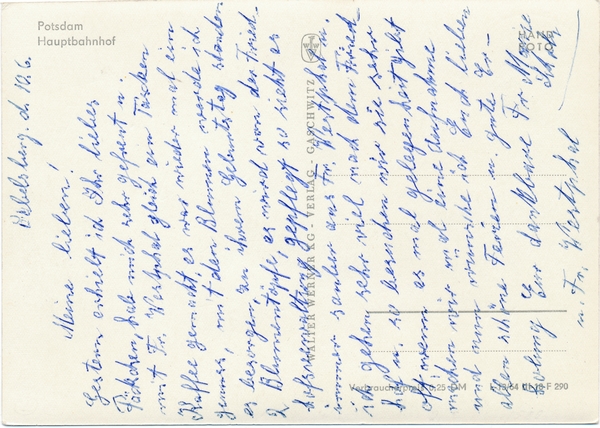 Potsdam
Hauptbahnhof
HAND
FOTO
WALTER WERNER KG - VERLAG - GASCHWITZ
Verbraucherpreis 0,25 DM
Babelsberg, d. 10.6.
Meine lieben!
Gestern erhielt ich Ihr liebes
Päckchen, habe mich sehr gefreut u.
mit Fr. Westphal gleich ein Täschen
Kaffee gemacht, es war wieder mal ein
Genuss, mit den Blumen werde ich
es besorgen, an ihrem Geburtstag standen
2 Blumentöpfe, es wird von der Fried-
hofsverwaltung gepflegt so sieht es
immer sauber aus Fr. Westphal u.
ich gehen sehr viel nach dem Fried-
hof u. so besuchen wir sie sehr
oft, wenn es mal gelegenheit gibt
machen wir mal eine Aufnahme
und nun wünsche ich Euch lieben
allen schöne Ferien u. gute Er-
holung Eure dankbare Fr.
u. Fr. Westphal